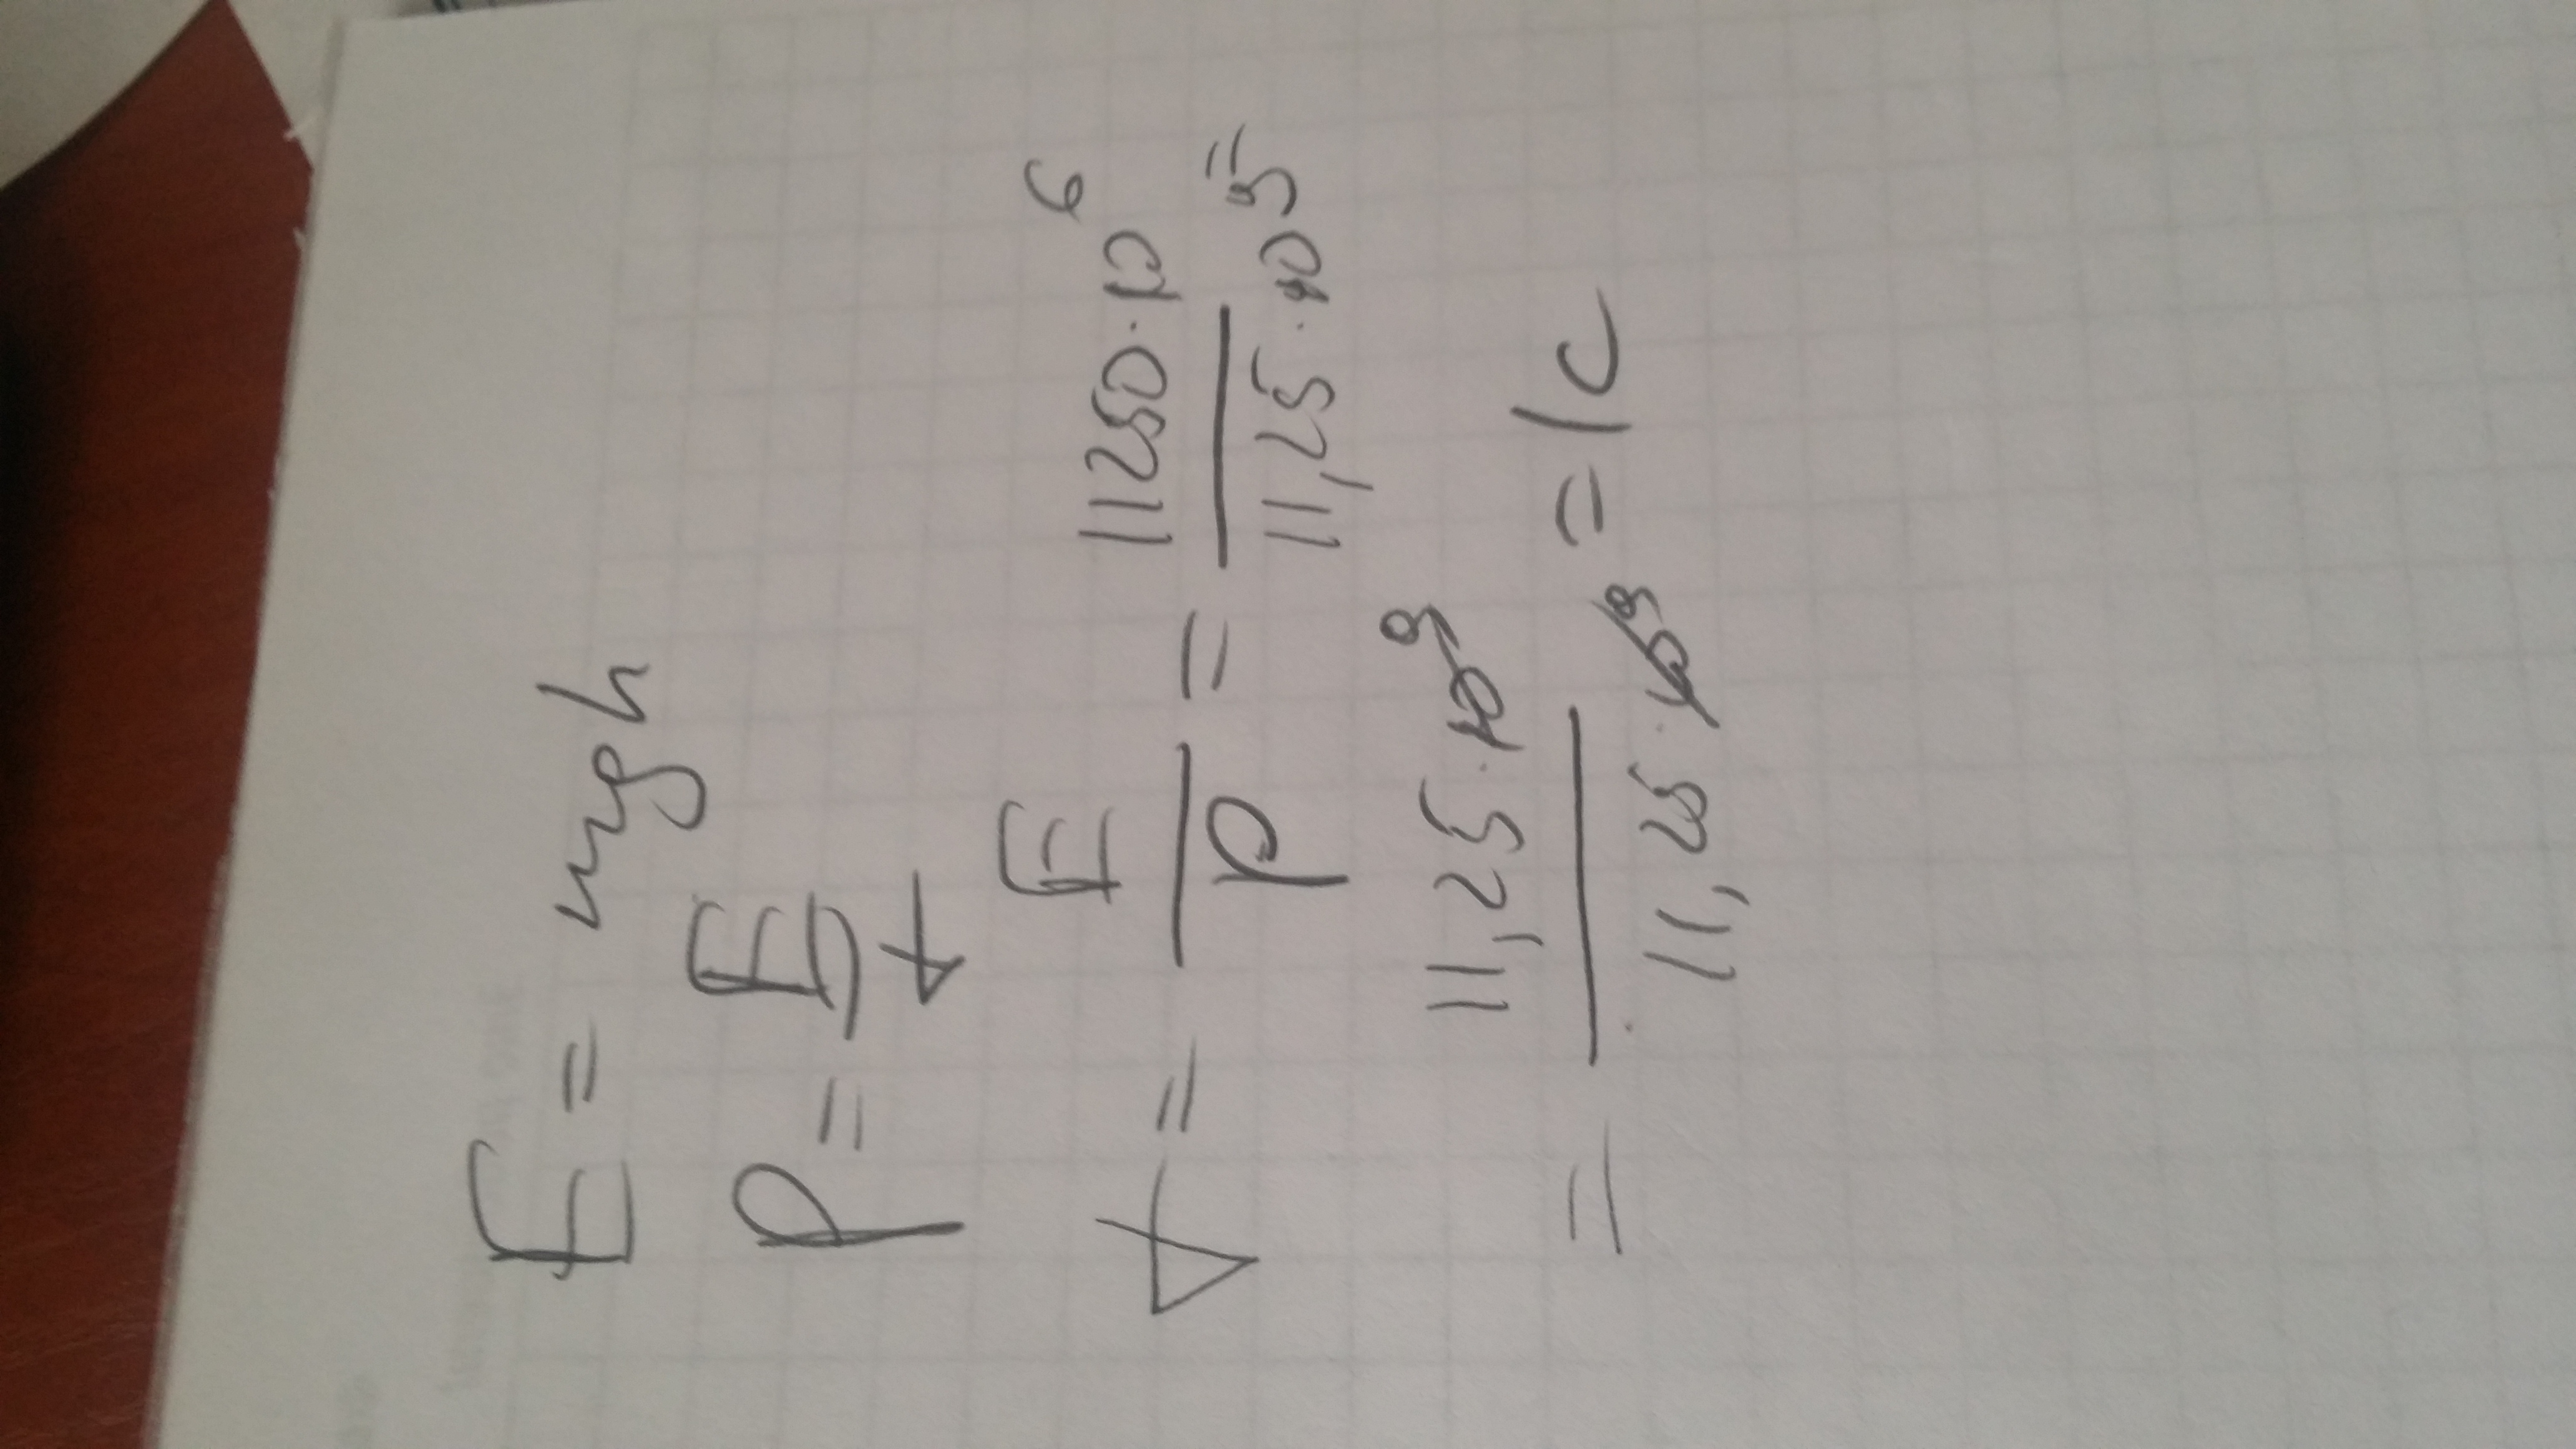 E = mgh
P = E/t
t = E/P = 11250·10⁶/11,25·10⁹ =
= 11,25·10⁹/11,25·10⁹ = 1c